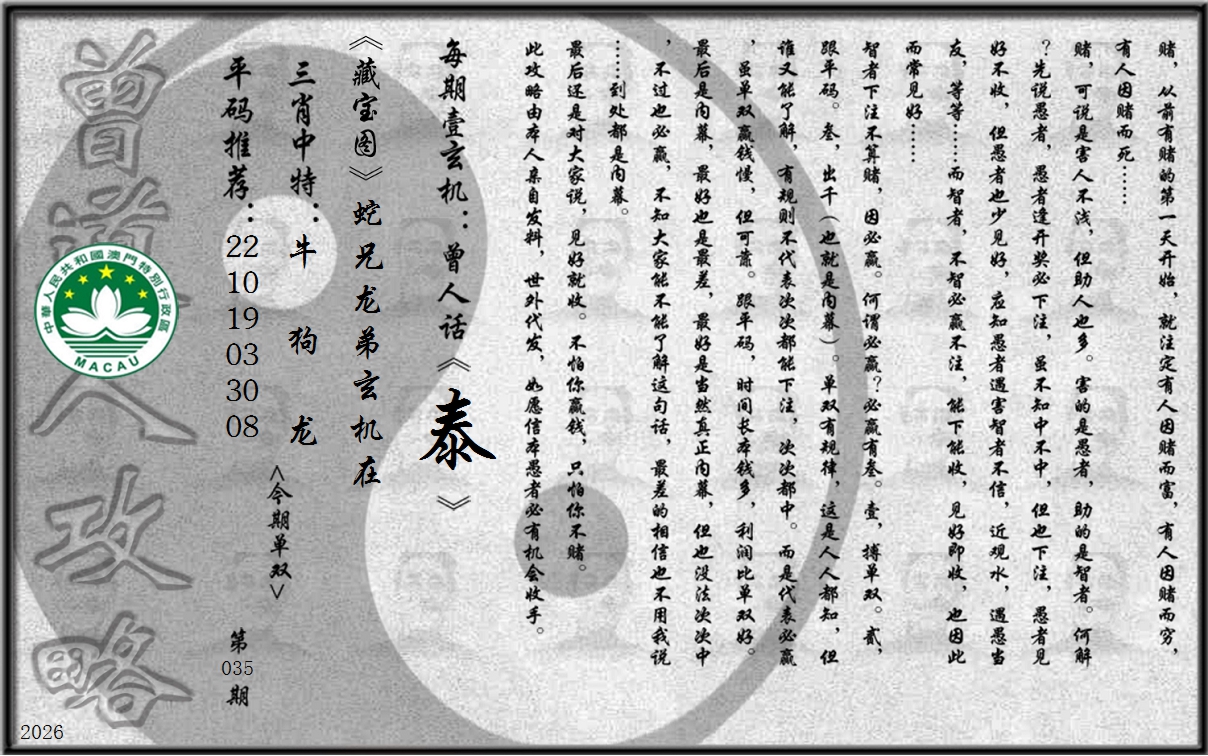 赌，从前有赌的第一天开始，就注定有人因赌而富，有人因赌而穷，
有人因赌而死……
赌，可说是害人不浅，但助人也多。害的是愚者，助的是智者。何解
？先说愚者，愚者逢开奖必下注，虽不知中不中，但也下注，愚者见
好不收，但愚者也少见好，应知愚者遇害智者不信，近观水，遇愚当
友，等等……而智者，不智必赢不注，能下能收，见好即收，也因此
而常见好……
智者下注不算赌，因必赢。何谓必赢？必赢有叁。壹，搏单双。贰，
跟平码。叁，出千（也就是内幕）。单双有规律，这是人人都知，但
谁又能了解，有规则不代表次次都能下注，次次都中。而是代表必赢
，虽单双赢钱慢，但可靠。跟平码，时间长本钱多，利润比单双好。
最后是内幕，最好也是最差，最好是当然真正内幕，但也没法次次中
，不过也必赢，不知大家能不能了解这句话，最差的相信也不用我说
……到处都是内幕。
最后还是对大家说，见好就收。不怕你赢钱，只怕你不赌。
此攻略由本人亲自发料，世外代发，如愿信本愚者必有机会收手。
每期壹玄机：曾人话《泰》
《藏宝图》蛇兄龙弟玄机在
三肖中特：牛 狗 龙
<今期单双>
平码推荐：22 10 19 03 30 08
第035期
曾道人攻略
中華人民共和國澳門特別行政區
MACAU
2026